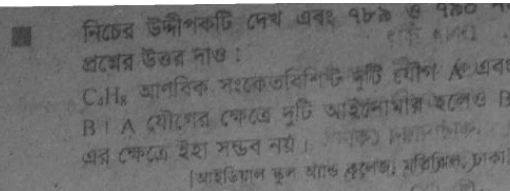 নিচের উদ্দীপকটি দেখ এবং ৭৮৯ ও ৭৯০
প্রশ্নের উত্তর দাও :
C₄H₈ আণবিক সংকেতবিশিষ্ট দুটি যৌগ A এবং
B। A যৌগের ক্ষেত্রে দুটি আইসোমার হলেও B
এর ক্ষেত্রে ইহা সম্ভব নয়।
[আইডিয়াল স্কুল অ্যান্ড কলেজ, মতিঝিল, ঢাকা]